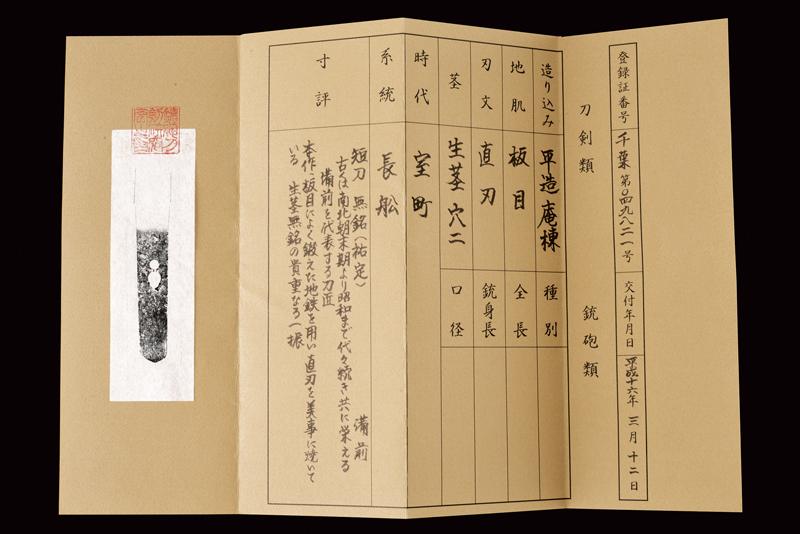 登録証番号 千葉 第〇四九八二一号 交付年月日 平成十六年 三月 十二日
刀剣類 銃砲類
造り込み 平造庵棟 種別
地肌 板目 全長
刃文 直刃 銃身長
茎 生茎 穴二 口径
時代 室町
系統 長舩
寸評 短刀 無銘(祐定) 備前
古くは南北朝末期より昭和まで代々続き共に栄える
備前を代表する刀匠
本作、板目によく鍛えた地鉄を用い直刃を美事に焼いて
いる 生茎無銘の貴重なる一振